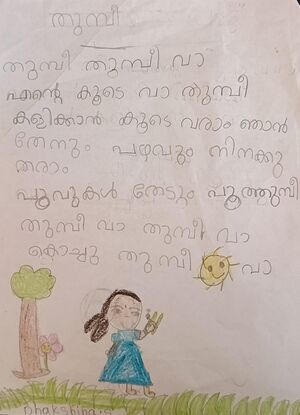 തുമ്പീ
തുമ്പീ തുമ്പീ വാ
എന്റെ കൂടെ വാ തുമ്പീ
കളിക്കാൻ കൂടെ വരാം ഞാൻ
തേനും പഴവും നിനക്കു
തരാം
പൂവുകൾ തേടും പൂത്തുമ്പീ
തുമ്പീ വാ തുമ്പീ വാ
കൊച്ചു തുമ്പീ വാ
Dhakshina.s